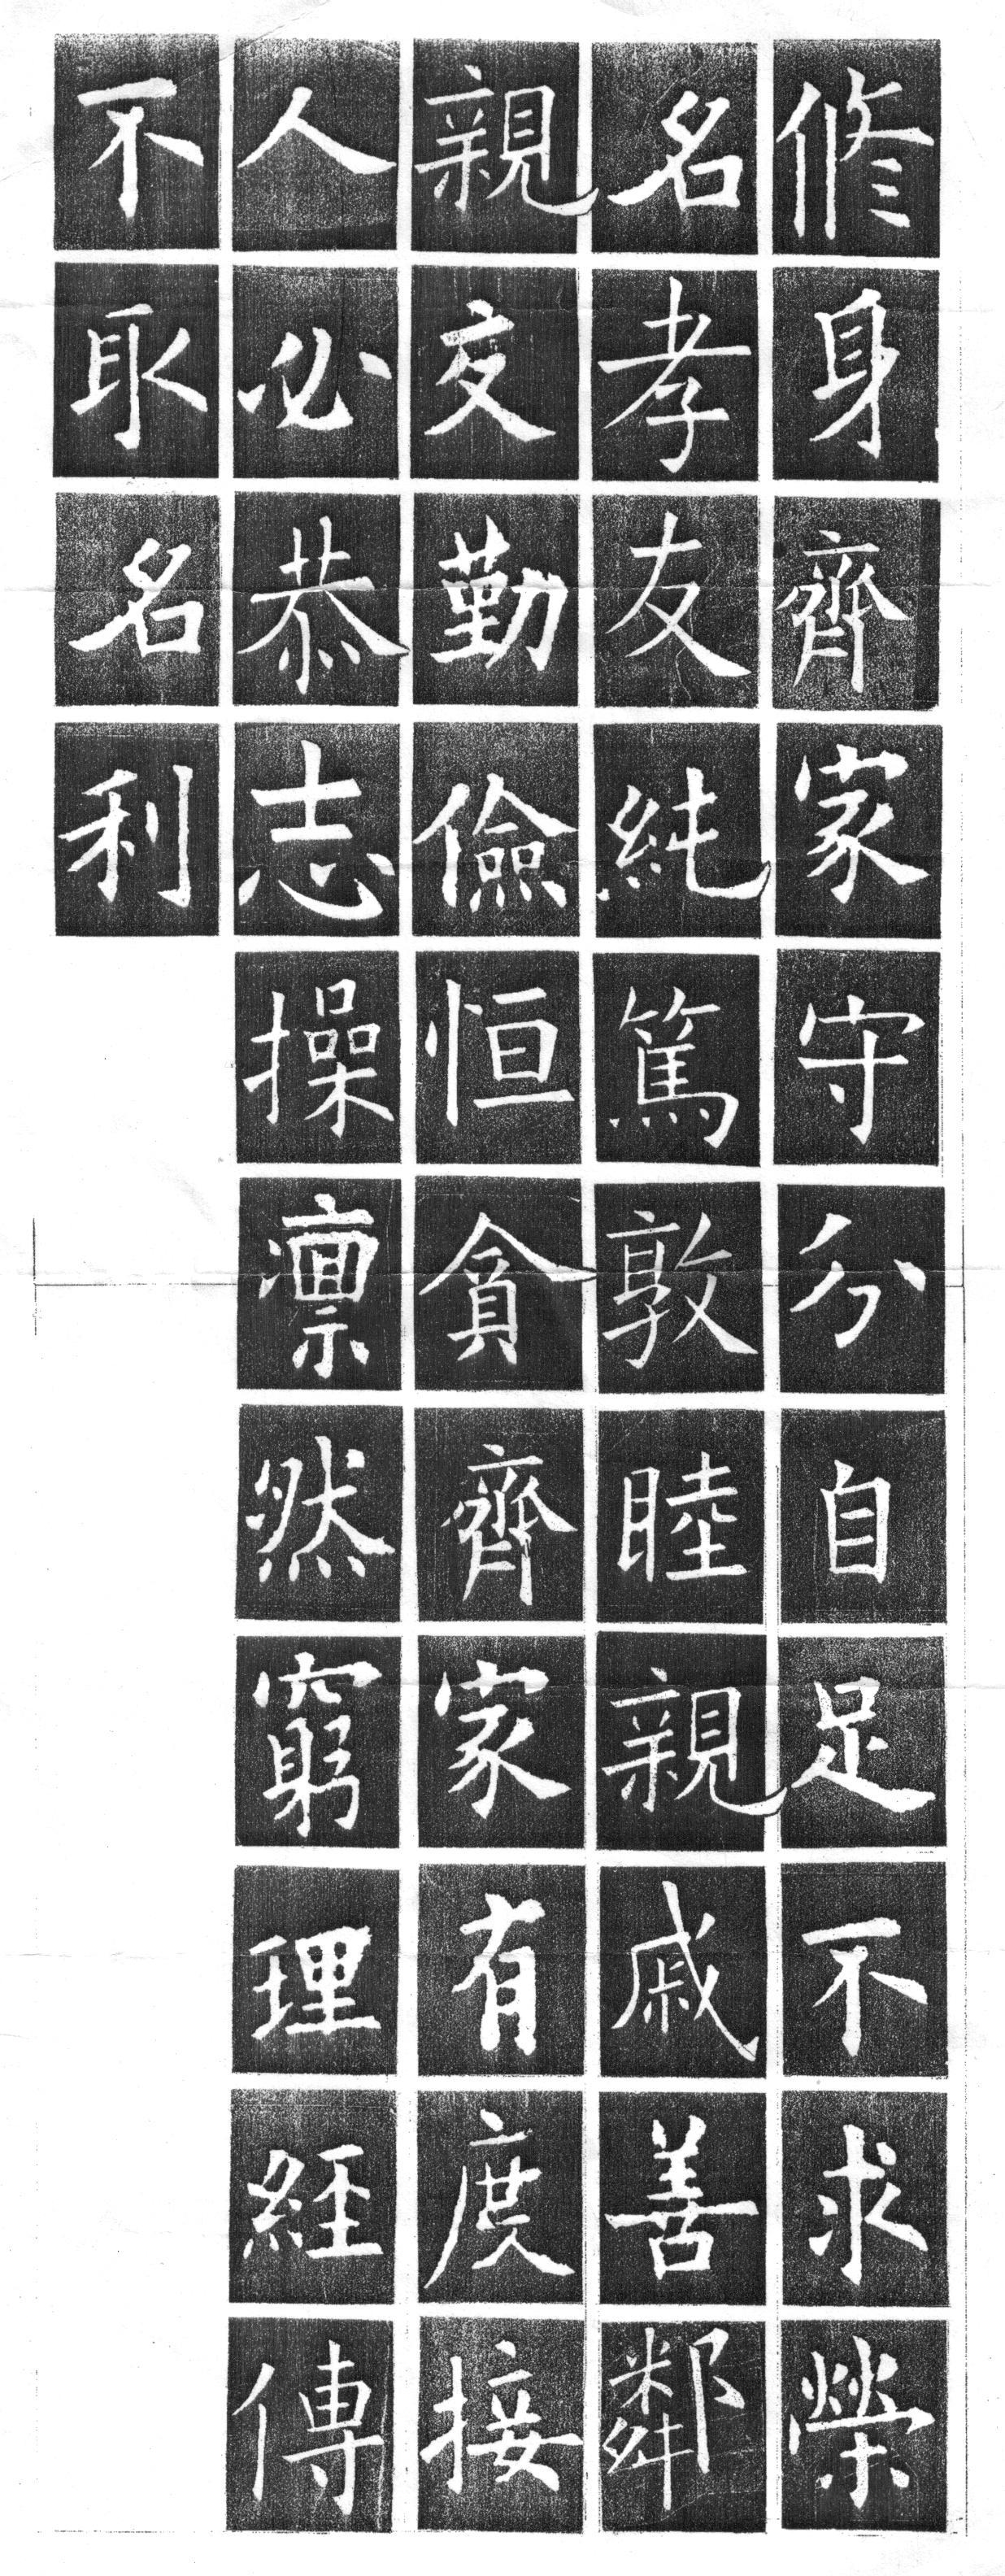 修身齊家守分自足不求榮
名孝友純篤敦睦親戚善鄰
親友勤儉恒貧齊家有度接
人必恭志操凛然窮理經傳
不取名利